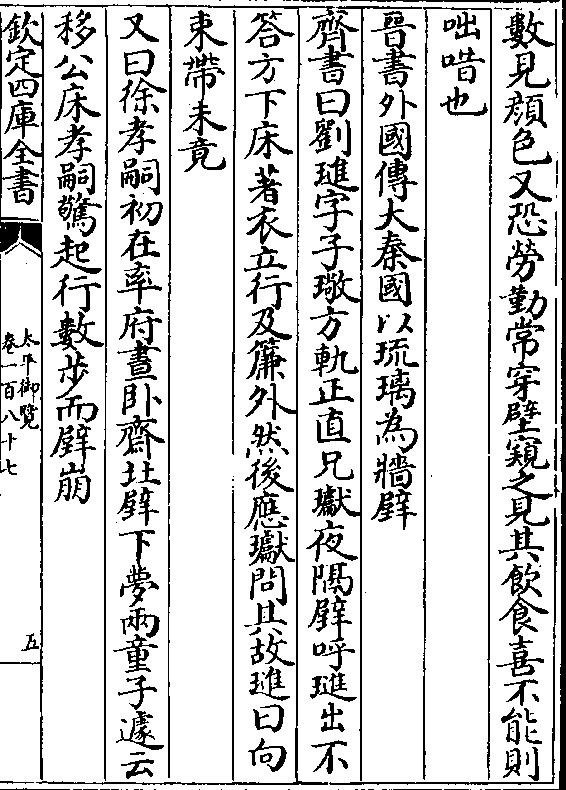 數見顔色又恐勞勤常穿壁窺之見其飲食喜不能則
咄唶也
晉書外國傳大秦國以琉璃為牆壁
齊書曰劉璡字子璥方軌正直兄瓛夜隔壁呼璡出不
答方下床著衣立行及簾外然後應瓛問其故璡曰向
束帶未竟
又曰徐孝嗣初在率府晝卧齋北壁下夢兩童子遽云
移公床孝嗣驚起行數步而壁崩
欽定四庫全書
太平御覽
卷一百八十七
五